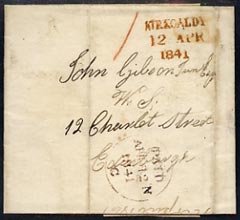 KIRKCALDY
12 APR
1841
John Gibson Junr Esq
W. S.
12 Charlot Street
Edinburgh
PAID
1841